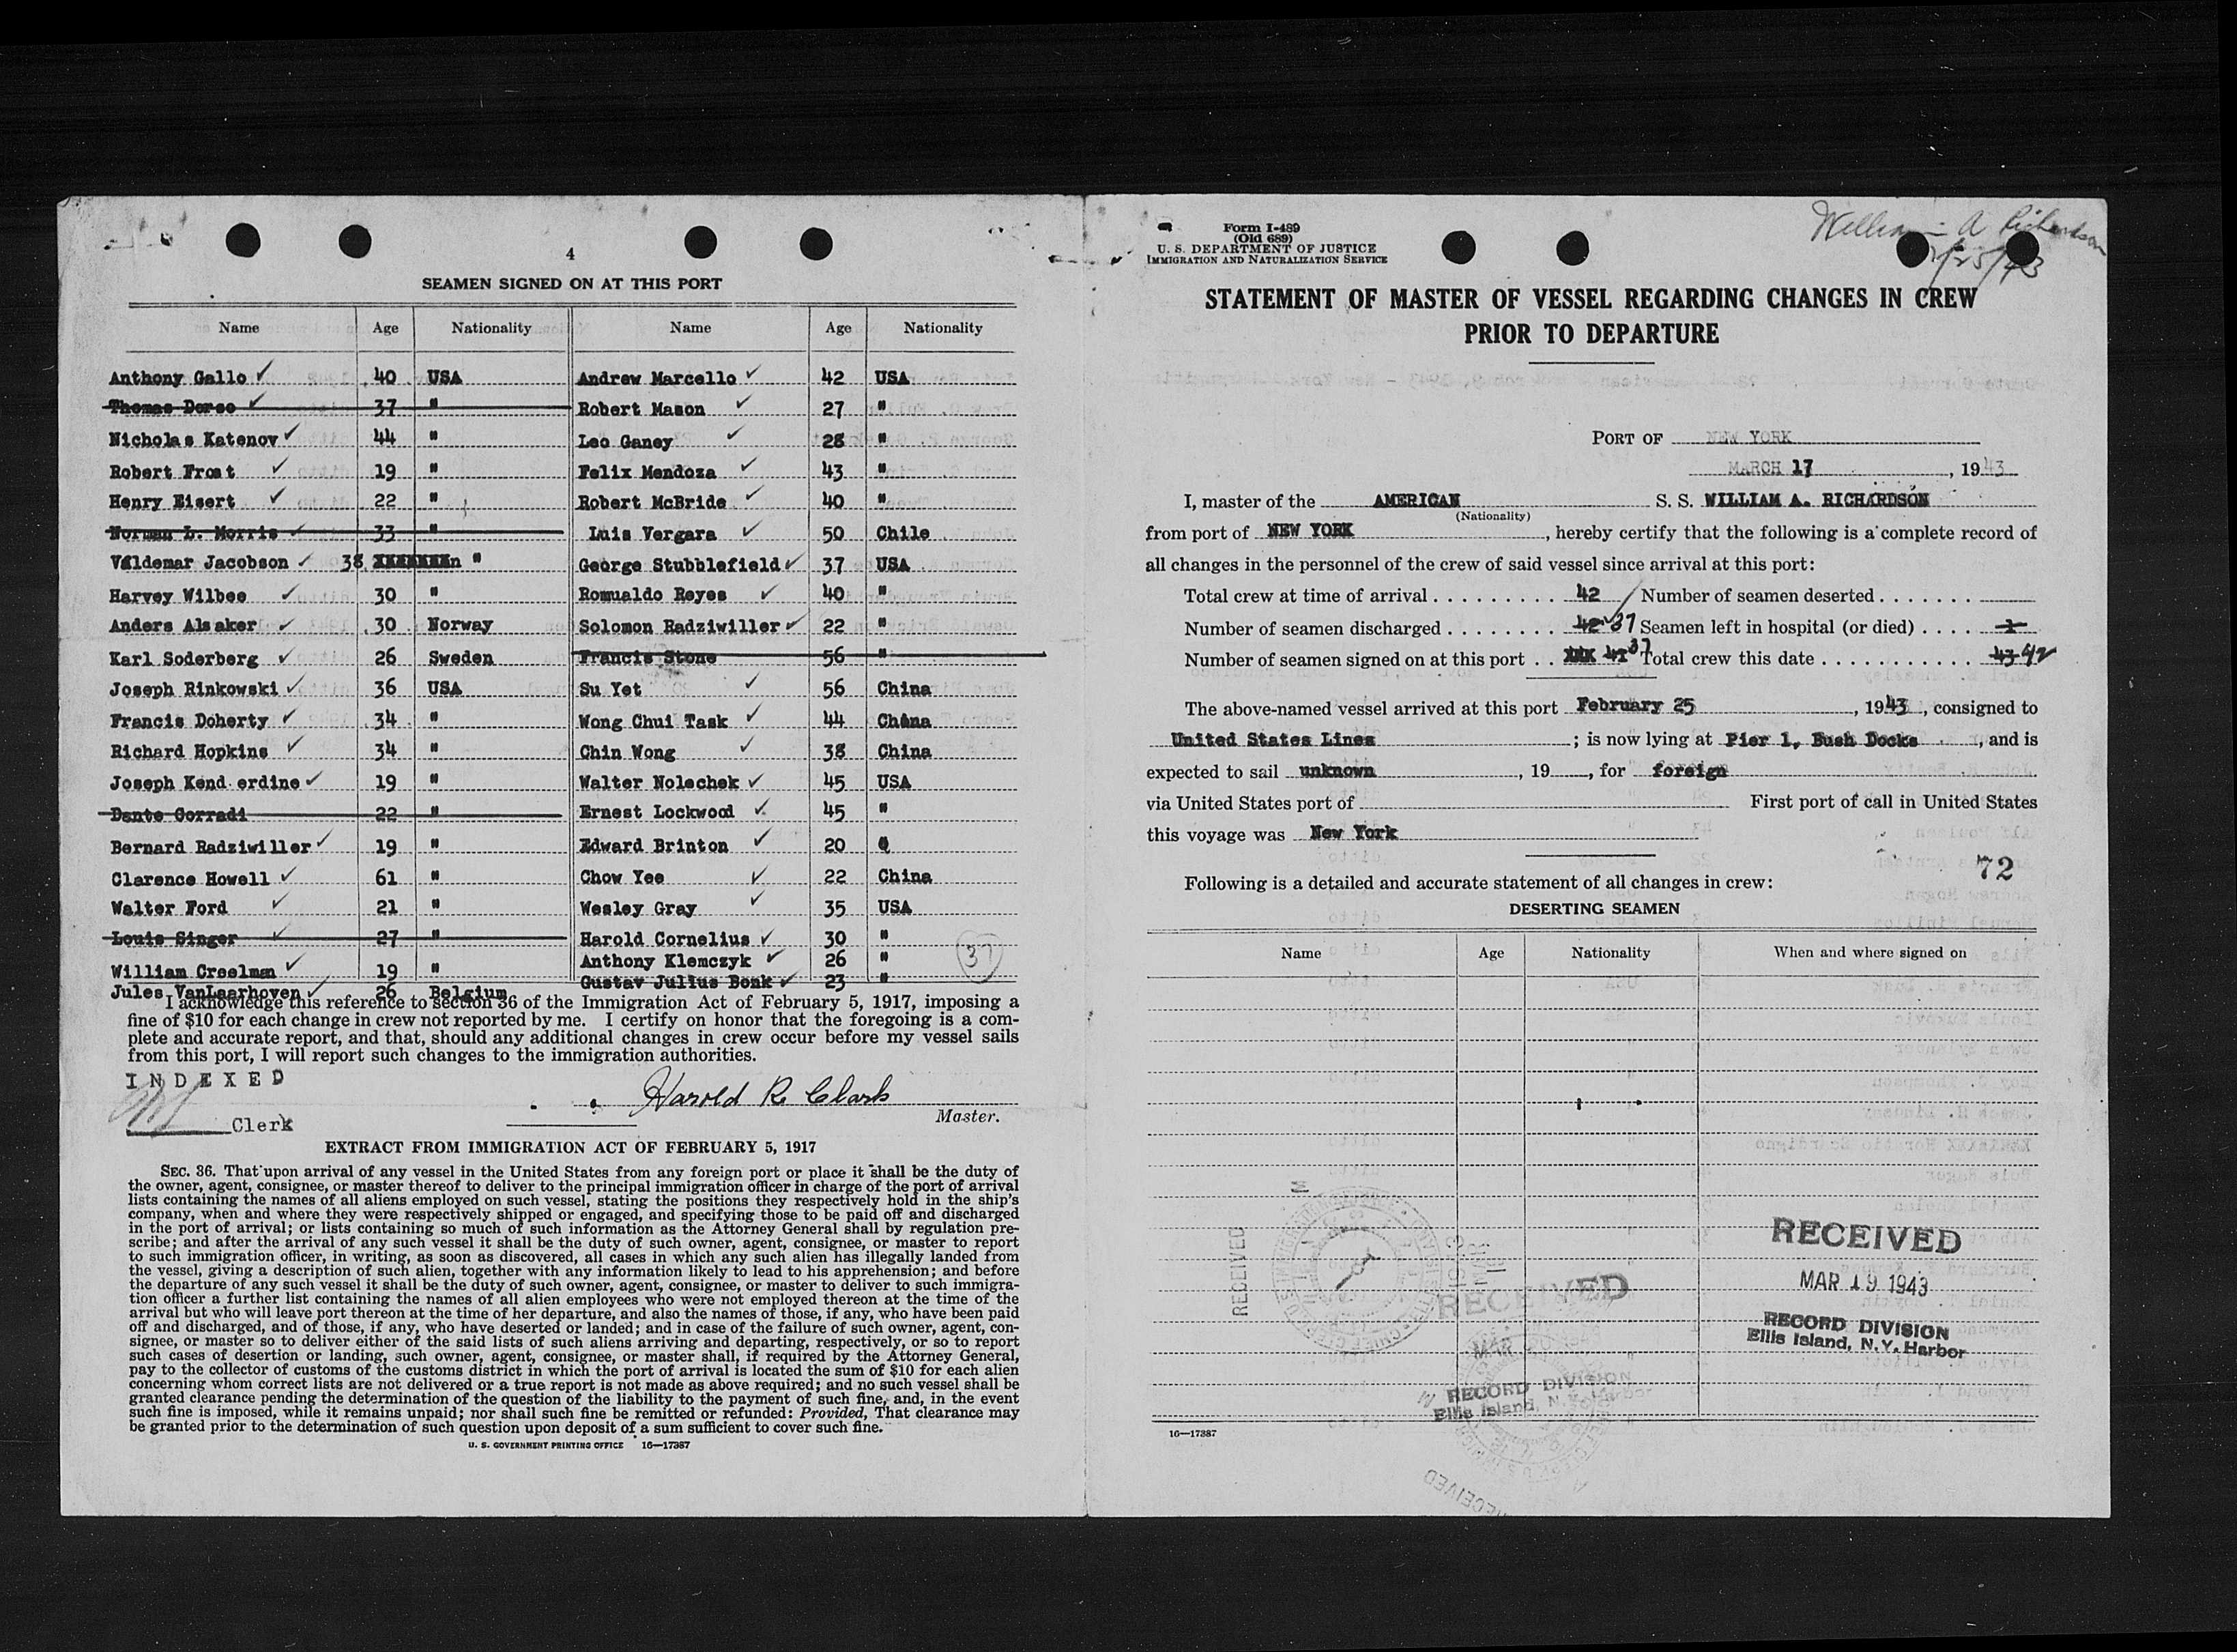 4
SEAMEN SIGNED ON AT THIS PORT
Name Age Nationality Name Age Nationality
Anthony Gallo ✓ 40 USA Andrew Marcello ✓ 42 USA
Thomas Dorso ✓ 37 " Robert Mason ✓ 27 "
Nicholas Katenov ✓ 44 " Leo Ganey ✓ 28 "
Robert Frost ✓ 19 " Felix Mendoza ✓ 43 "
Henry Eisert ✓ 22 " Robert McBride ✓ 40 "
Norman L. Morris ✓ 33 " Luis Vergara ✓ 50 Chile
Valdemar Jacobson ✓ 38 " George Stubblefield ✓ 37 USA
Harvey Wilbee ✓ 30 " Romualdo Reyes ✓ 40 "
Anders Alsaker ✓ 30 Norway Solomon Radziwiller ✓ 22 "
Karl Soderberg ✓ 26 Sweden Francis Stone 56 "
Joseph Rinkowski ✓ 36 USA Su Yet ✓ 56 China
Francis Doherty ✓ 34 " Wong Chui Task ✓ 44 China
Richard Hopkins ✓ 34 " Chin Wong ✓ 38 China
Joseph Kend erdine ✓ 19 " Walter Nolechek ✓ 45 USA
Dante Corradi 22 " Ernest Lockwood ✓ 45 "
Bernard Radziwiller ✓ 19 " Edward Brinton ✓ 20
Clarence Howell ✓ 61 " Chow Yee ✓ 22 China
Walter Ford ✓ 21 " Wesley Gray ✓ 35 USA
Louis Singer ✓ 27 " Harold Cornelius ✓ 30 "
William Creelman ✓ 19 " Anthony Klemczyk ✓ 26 " 37
Jules VanLaarhoven ✓ 26 Belgium Gustav Julius Bonk ✓ 23 "
I acknowledge this reference to section 36 of the Immigration Act of February 5, 1917, imposing a
fine of $10 for each change in crew not reported by me. I certify on honor that the foregoing is a com-
plete and accurate report, and that, should any additional changes in crew occur before my vessel sails
from this port, I will report such changes to the immigration authorities.
INDEXED
Harold R. Clark
Clerk Master.
EXTRACT FROM IMMIGRATION ACT OF FEBRUARY 5, 1917
SEC. 36. That upon arrival of any vessel in the United States from any foreign port or place it shall be the duty of
the owner, agent, consignee, or master thereof to deliver to the principal immigration officer in charge of the port of arrival
lists containing the names of all aliens employed on such vessel, stating the positions they respectively hold in the ship's
company, when and where they were respectively shipped or engaged, and specifying those to be paid off and discharged
in the port of arrival; or lists containing so much of such information as the Attorney General shall by regulation pre-
scribe; and after the arrival of any such vessel it shall be the duty of such owner, agent, consignee, or master to report
to such immigration officer, in writing, as soon as discovered, all cases in which any such alien has illegally landed from
the vessel, giving a description of such alien, together with any information likely to lead to his apprehension; and before
the departure of any such vessel it shall be the duty of such owner, agent, consignee, or master to deliver to such immigra-
tion officer a further list containing the names of all alien employees who were not employed thereon at the time of the
arrival but who will leave port thereon at the time of her departure, and also the names of those, if any, who have been paid
off and discharged, and of those, if any, who have deserted or landed; and in case of the failure of such owner, agent, con-
signee, or master so to deliver either of the said lists of such aliens arriving and departing, respectively, or so to report
such cases of desertion or landing, such owner, agent, consignee, or master shall, if required by the Attorney General,
pay to the collector of customs of the customs district in which the port of arrival is located the sum of $10 for each alien
concerning whom correct lists are not delivered or a true report is not made as above required; and no such vessel shall be
granted clearance pending the determination of the question of the liability to the payment of such fine, and, in the event
such fine is imposed, while it remains unpaid; nor shall such fine be remitted or refunded: Provided, That clearance may
be granted prior to the determination of such question upon deposit of a sum sufficient to cover such fine.
U. S. GOVERNMENT PRINTING OFFICE 16—17387
William A Richardson
2/25/43
Form I-489
(Old 689)
U. S. DEPARTMENT OF JUSTICE
IMMIGRATION AND NATURALIZATION SERVICE
STATEMENT OF MASTER OF VESSEL REGARDING CHANGES IN CREW
PRIOR TO DEPARTURE
PORT OF NEW YORK
MARCH 17, 1943
I, master of the AMERICAN S. S. WILLIAM A. RICHARDSON
(Nationality)
from port of NEW YORK, hereby certify that the following is a complete record of
all changes in the personnel of the crew of said vessel since arrival at this port:
Total crew at time of arrival . . . . . . . . . 42 Number of seamen deserted . . . . . . .
Number of seamen discharged . . . . . . . . 42 37 Seamen left in hospital (or died) . . . . 1
Number of seamen signed on at this port . . XXX 41 37 Total crew this date . . . . . . . . . . . . 43 42
The above-named vessel arrived at this port February 25, 1943, consigned to
United States Lines; is now lying at Pier 1, Bush Docks, and is
expected to sail unknown, 19, for foreign
via United States port of First port of call in United States
this voyage was New York
72
Following is a detailed and accurate statement of all changes in crew:
DESERTING SEAMEN
Name Age Nationality When and where signed on
RECEIVED
MAR 19 1943
RECORD DIVISION
Ellis Island, N.Y. Harbor
RECEIVED
RECEIVED
MAR
RECORD DIVISION
Ellis Island, N.Y. Harbor
RECEIVED
16—17387